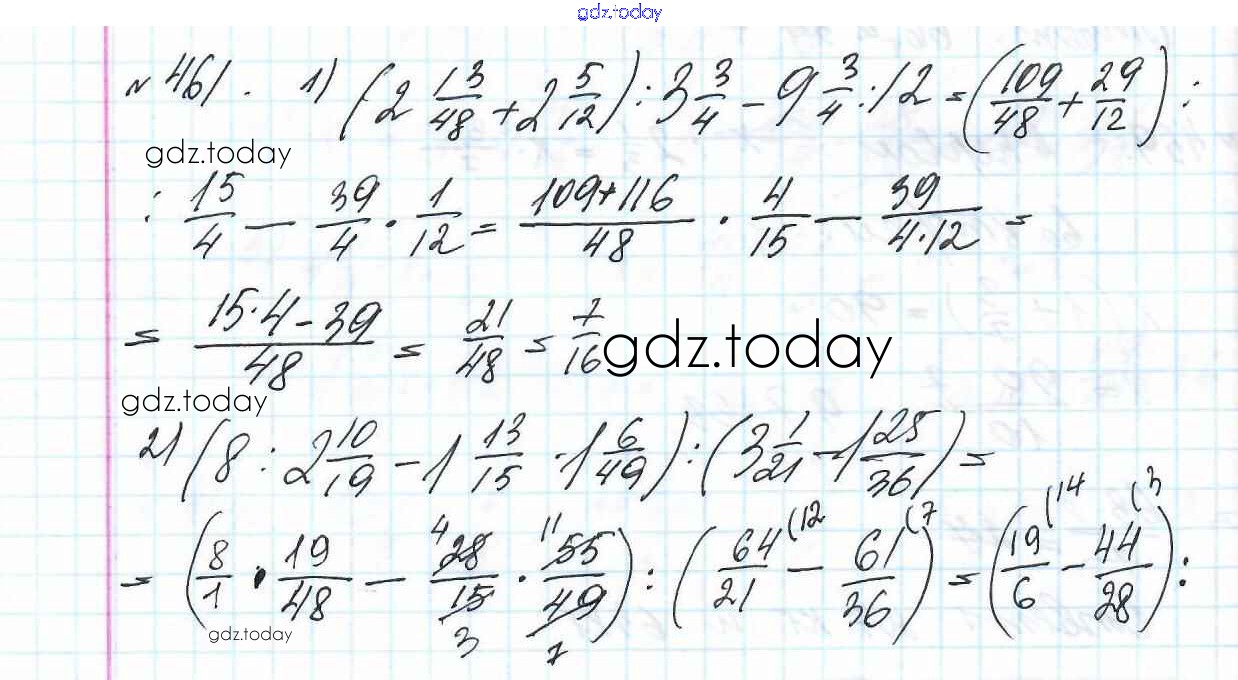 gdz.today
№ 461. 1) (2 13/48 + 2 5/12) : 3 3/4 - 9 3/4 : 12 = (109/48 + 29/12) :
gdz.today
: 15/4 - 39/4 · 1/12 = (109+116)/48 · 4/15 - 39/(4·12) =
= (15·4-39)/48 = 21/48 = 7/16
gdz.today
gdz.today
2) (8 : 2 10/19 - 1 13/15 · 1 6/49) : (3 1/21 - 1 25/36) =
= (8/1 · 19/48 - 4 28/15 3 · 11 55/49 7) : (64/21 (12 - 61/36 (7) = (19/6 (14 - 44/28 (3) :
gdz.today